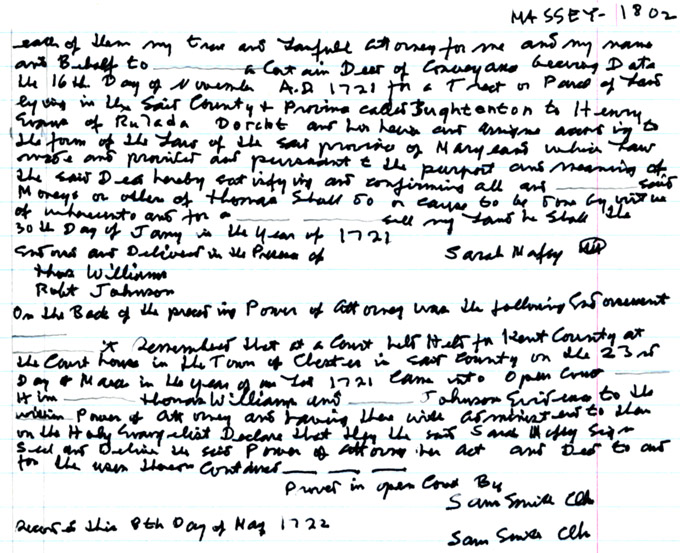 MASSEY - 1802
each of them my true and Lawfull Attorney for me and my name
and Behalf to ________ a Certain Deed of Conveyance bearing Date
the 16th Day of November A.D 1721 for a Tract or Parcel of Land
lying in the Said County & Province called Bughtonton to Henry
Evans of Dorcht and his heirs and assigns according to
the form of the Law of the said province of Maryland which Law
made and provided and pursuant t the purport and meaning of
the said Deed hereby satisfying and confirming all and ________ said
Moneys or others of thomas Shall do or cause to be done by virtue
of whereunto and for a ____ ________ sell my hand he Shall the
30th Day of Jany in the Year of 1721
and Delivered in the Presence of Sarah Massy
thos Williams
Robt Johnson
On the Back of the preceding Power of Attorney was the following Endorsement
________ Remembered that at a Court held Held for Kent County at
the Court house in the Town of Chester in said County on the 23rd
Day of March in the year of our Lod 1721 Came into Open Court ____
Him ________ thomas Williams and ________ Johnson Evidence to the
within Power of Attorney and having their Administered to them
on the Holy Evangelist Declare that they the said Sarah Massy Sign
Seal and Deliver the said Power of Attorney her Act and Deed to and
for the uses therein Contained ____ ____ ____
Proved in open Court By
Sam Smith Clk
Record this 8th Day of May 1722
Sam Smith Clk